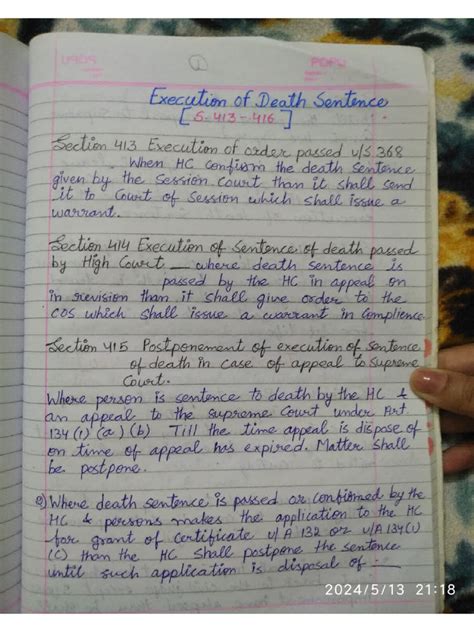 ①
Execution of Death Sentence
[S-413-416]
Section 413 Execution of order passed u/s 368
When HC confirm the death sentence
given by the Session Court than it shall send
it to Court of Session which shall issue a
warrant.
Section 414 Execution of Sentence of death passed
by High Court _ where death sentence is
passed by the HC in appeal on
in revision than it shall give order to the
COS which shall issue a warrant in Complience
Section 415 Postponement of execution of sentence
of death in case of appeal to Supreme
Court.
Where person is sentence to death by the HC &
an appeal to the supreme Court under Art.
134(1) (a) (b) Till the time appeal is dispose of
on time of appeal has expired. Matter shall
be postpone.
Where death sentence is passed or confirmed by the
HC & persons makes the application to the HC
for grant of certificate u/A 132 or u/A 134(1)
(C) than the HC shall postpone the sentence
until such application is disposal of
2024/5/13 21:18